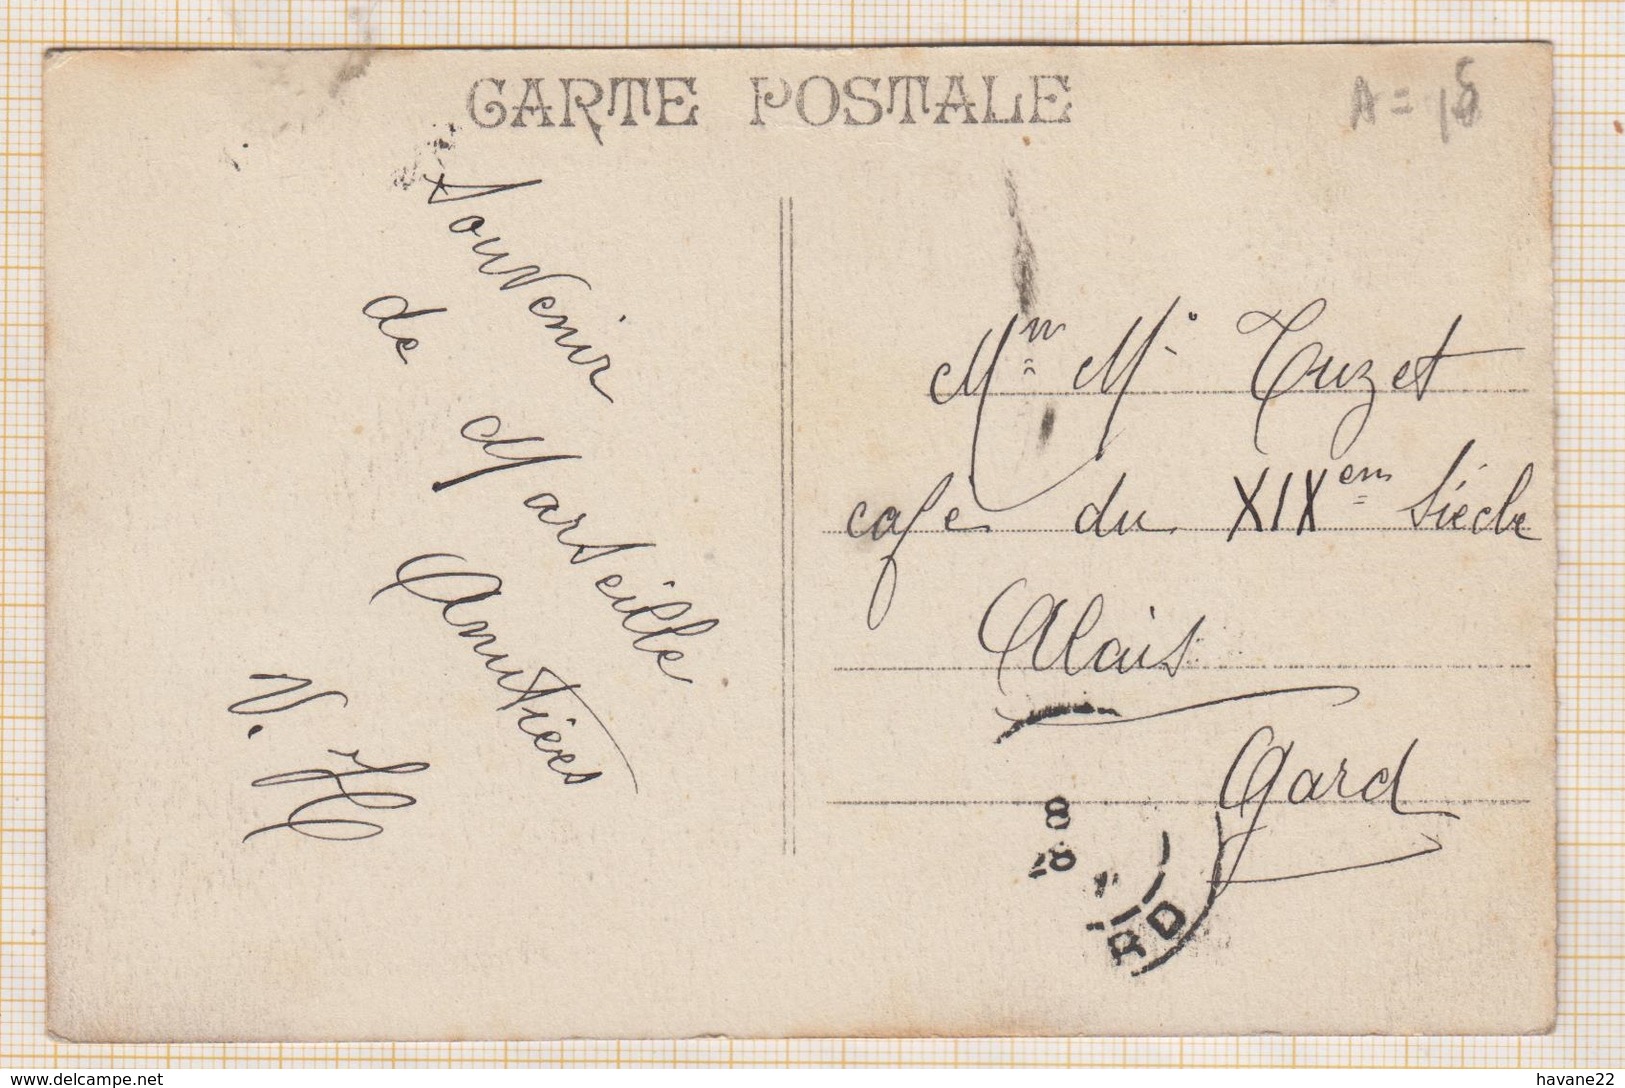 CARTE POSTALE
A = 18
Souvenir
de Marseille
Amitiées
V. H
M. Tuzet
café du XIXem Siécle
Alais
Gard
RD
delcampe.net
havane22